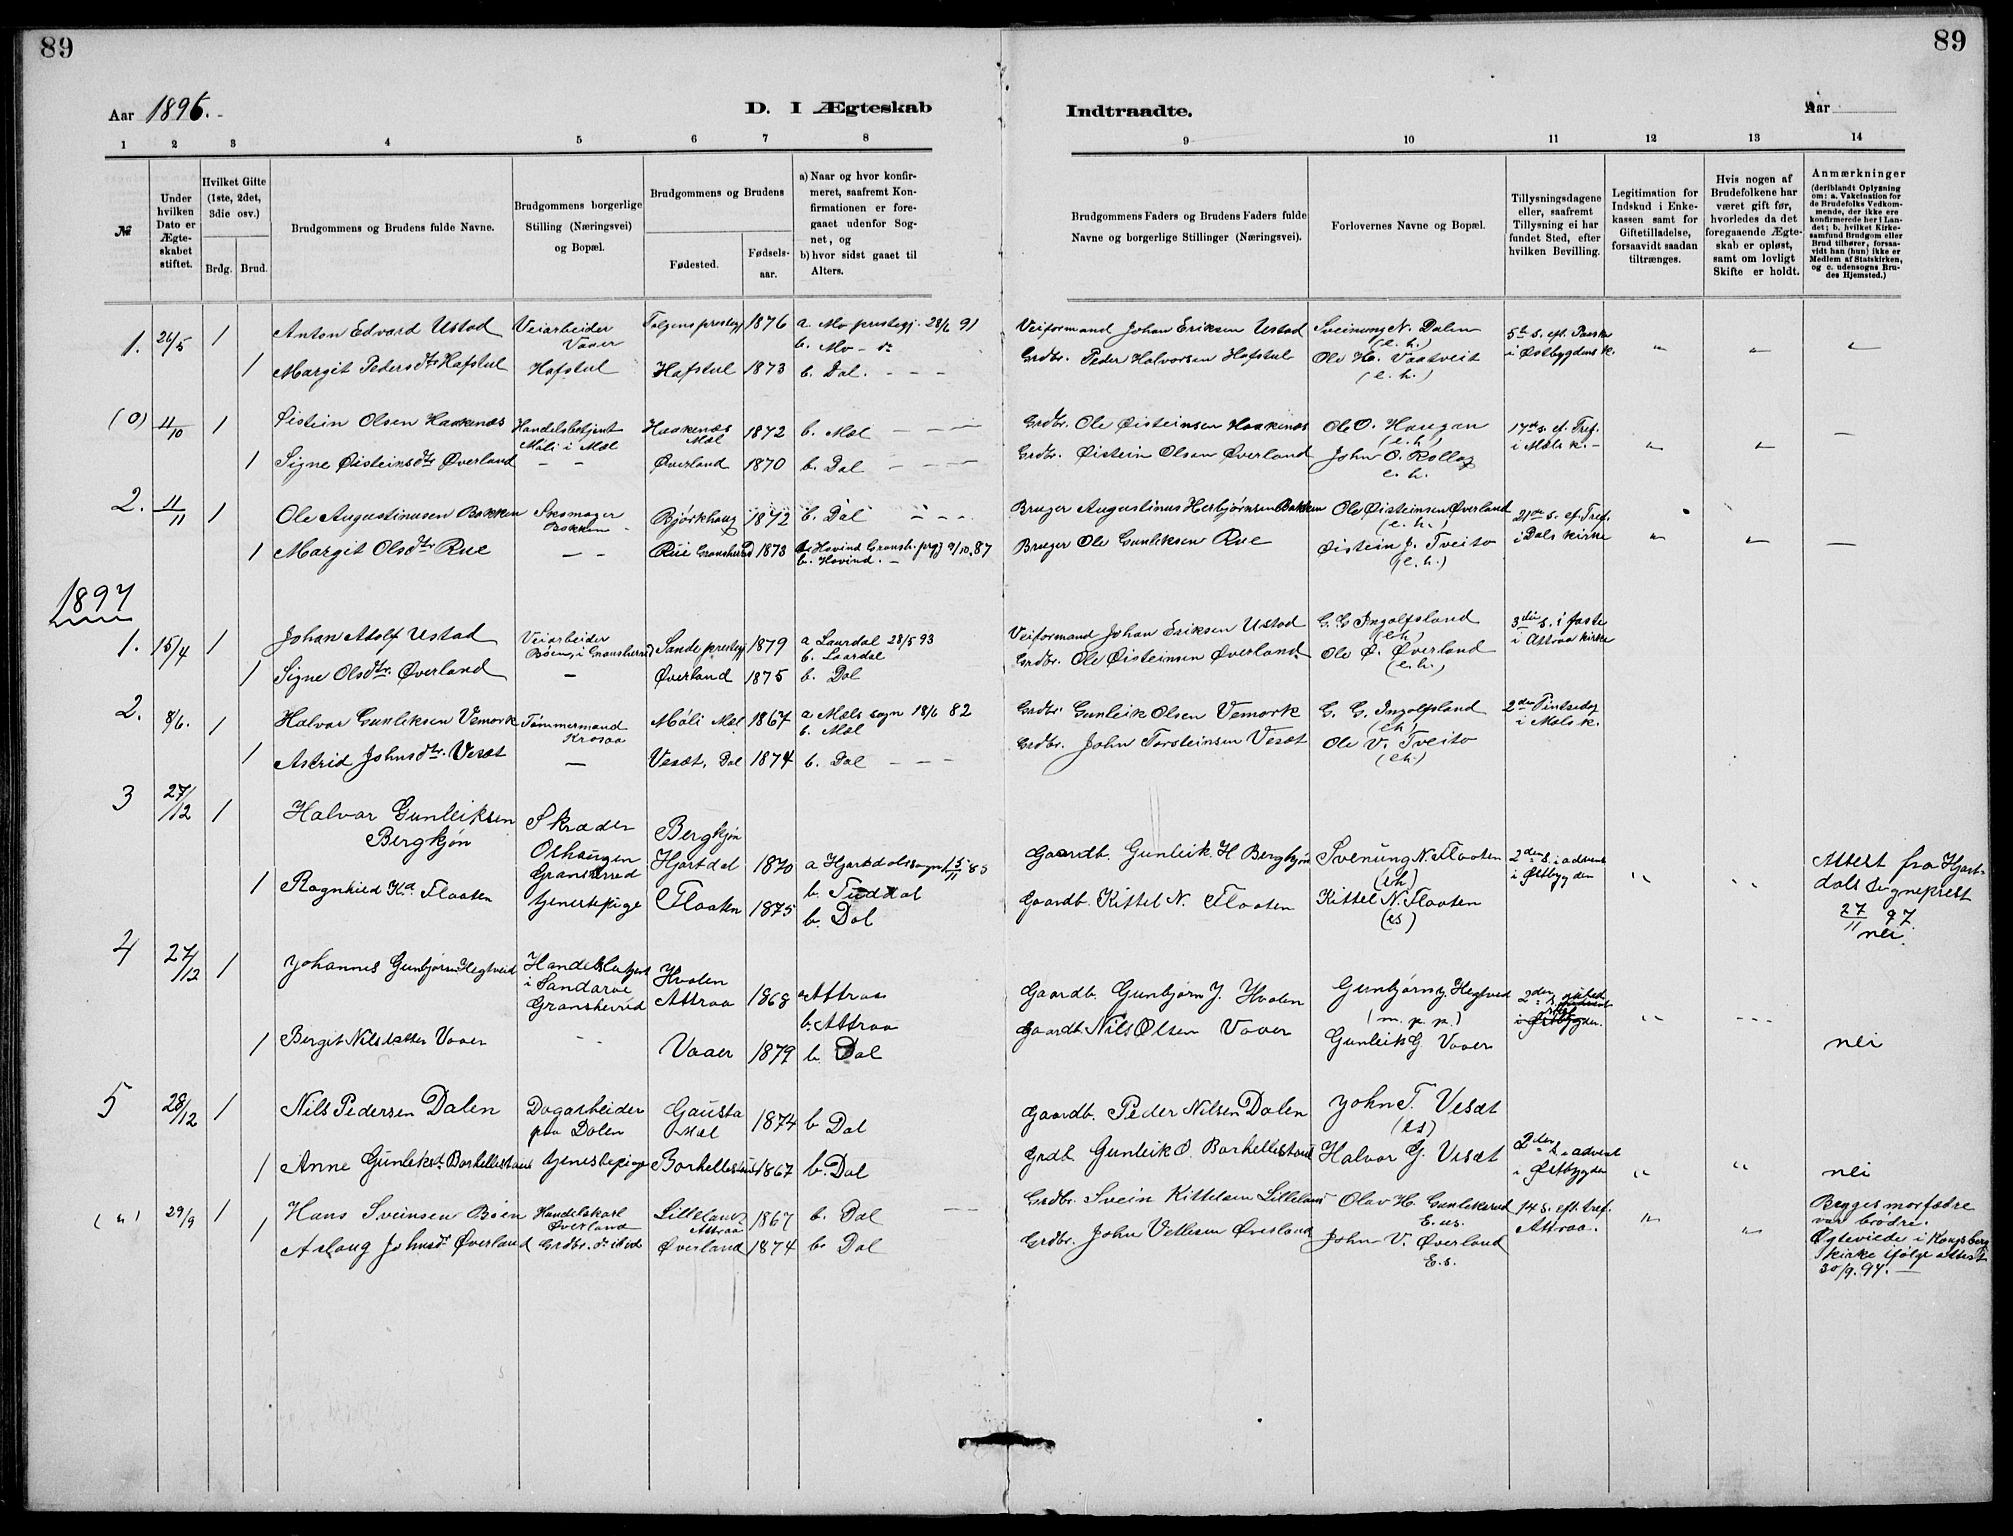 89
89
Aar 1896.
D. I Ægteskab
Indtraadte.
Aar
1 2 3 4 5 6 7 8
9 10 11 12 13 14
№
Under hvilken Dato er Ægteskabet stiftet.
Hvilket Gifte (1ste, 2det, 3die osv.)
Brdg.
Brud.
Brudgommens og Brudens fulde Navne.
Brudgommens borgerlige Stilling (Næringsvei) og Bopæl.
Brudgommens og Brudens
Fødested.
Fødsels-aar.
a) Naar og hvor konfir-
meret, saafremt Kon-
firmationen er fore-
gaaet udenfor Sog-
net, og
b) hvor sidst gaaet til
Alters.
Brudgommens Faders og Brudens Faders fulde
Navne og borgerlige Stillinger (Næringsvei).
Forlovernes Navne og Bopæl.
Tillysningsdagene
eller, saafremt
Tillysning ei har
fundet Sted, efter
hvilken Bevilling.
Legitimation for
Indskud i Enke-
kassen samt for
Giftetilladelse,
forsaavidt saadan
tiltrænges.
Hvis nogen af
Brudefolkene har
været gift før,
hvorledes da det
foregaaende Ægte-
skab er opløst,
samt om lovligt
Skifte er holdt.
Anmærkninger
(deriblandt Oplysning
om: a. Vakcination for
de Brudefolks Vedkom-
mende, der ikke ere
konfirmerede her i Lan-
det; b. hvilket Kirke-
samfund Brudgom eller
Brud tilhører, forsaa-
vidt han (hun) ikke er
Medlem af Statskirken,
og c. udensogns Bru-
des Hjemsted.)
1. 26/5 1 Anton Edvard Ustad Veiarbeider Vaaer 1876 a. Mo prestegj. 28/6 91 b. Mo - d: Veiformand Johan Eriksen Ustad Sveinung N. Dalen (e. h.) 5te s. eft. Paaske i Østbygdens k. " " "
1 Margit Pedersdtr Hafstul Hafstul Hafstul 1873 b. Dal. - - - Grdbr. Peder Halvorsen Hafstul Ole H. Vaatveit (e. h.)
(0) 11/10 1 Øistein Olsen Haakenæs Handelsbetjent Mæli i Mæl Haakenæs Mæl 1872 b. Mæl - - - Grdbr. Ole Øisteinsen Haakenæs Ole O. Haugan (e. h) 17de s. ef. Tref. i Mæls k. - " " -
1 Signe Øisteinsdtr Øverland - - Øverland 1870 b. Dal - - - Grdbr. Øistein Olsen Øverland John O. Rollag e. h.
2. 11/11 1 Ole Augustinusen Bakken Skomager Bakken Bjørkhaug 1872 b. Dal - - - Bruger Augustinus Herbjørnsen Bakken Ole Øisteinsen Øverland (e. h.) 21de s. ef. Tref. i Dals kirke " " -
1 Margit Olsdtr Rue - - Rue Gransherred 1873 a. Hovind Gransh. prgj 9/10.87 b. Hovind. - Bruger Ole Gunleksen Rue Øistein J. Tveito (e. h.)
1897
1. 15/4 1 Johan Adolf Ustad Veiarbeider Bøen, i Gransherred Sande prestegj 1879 a Laurdal 28/5 93 b. Laardal Veiformand Johan Eriksen Ustad G. G Ingolfsland (eh) 3die s. i faste i Attraa kirke
1 Signe Olsdtr. Øverland - Øverland 1875 b. Dal Grdbr. Ole Øisteinsen Øverland Ole Ø. Øverland (e. h.)
2. 8/6. 1 Halvor Gunleksen Vemork Tømmermand Krosaa Mæli Mæl 1867 a Mæls sogn 18/6 82 b. Mæl Grdbr Gunleik Olsen Vemork G. G. Ingolfsland (eh) 2den Pintsedag i Mæls k.
1 Astrid Johnsdtr. Vesæt - Vesæt, Dal 1874 b. Dal - - - Grdbr. John Torsteinsen Vesæt Ole V. Tveito (eh.)
3 27/12 1 Halvor Gunleiksen Bergkjøn Skræder Gransherred Bergkjøn Hjartdal 1870 a Hjartdals sogn 15/11 85 b. Tuddal Gaardb. Gunleik H Bergkjøn Svenung N. Flaaten (eh) 2den s. i advent i Østbygden " " Attest fra Hjart-
dals sogneprest
27/11 97.
nei.
1 Ragnhild Kd Flaaten tjenestepige Flaaten 1875 b. Dal Gaardb. Kittel N. Flaaten Kittel N. Flaaten (es)
4 27/12 1 Johannes Gunbjørnsen Hegtveid Handelsbetjent i Sandaroe Gransherred Hvolen Attraa 1868 a Attraa b. Attraa Gaardb. Gunbjørn J. Hvolen Gunbjørn J. Hegtveid (m. p. p.) 2den s. advent i Østbygden. " ---
1 Bergit Nilsdatter Vaaer - - Vaaer 1879 b. Dal Gaardb. Nils Olsen Vaaer Gunleik G Vaaer nei
5 28/12 1 Nils Pedersen Dalen Dagarbeider paa Dalen Gausta Mæl 1874 b Dal Gaardb. Peder Nilsen Dalen John T. Vesæt (es) 2den s. i advent i Østbygden " " nei
1 Anne Gunleksd. Borhellestaul tjenestepige Borhellestaul 1867 b. Dal Grdb Gunleik O. Borhellestaul Halvor G. Vesæt
29/9 1 Hans Sveinsen Bøen Handelskarl Øverland Lilleland Attraa 1867 b. Dal - - Grdbr. Svein Kittelsen Lilleland Olav H. Gunleiksrud E. es. 14 s. eft. tref. Attraa. " " Begges morfædre
var brødre.
Ægteviede i Kongsberg
kirke ifølge attest
30/9. 97. -
1 Aslaug Johnsdr Øverland Grdbr. dr. ibid Øverland 1874 b. Dal Grdbr. John Vetlesen Øverland John V. Øverland E. s.